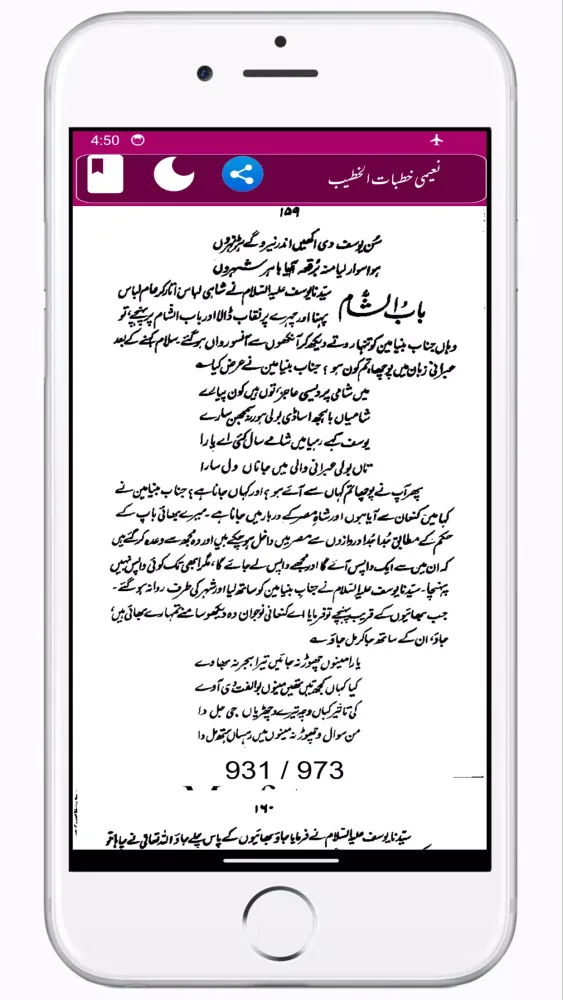 4:50
نعیمی خطبات الخطیب
۱۵۹
سُن یوسف دی اکھیں اندر نیر وگے
ہو اسوار لیا منہ بُرقعہ آیا باہر شہروں
بابُ الشام
سیّدنا یوسف علیہ السلام نے شاہی لباس اُتار کر عام لباس
پہنا اور چہرے پر نقاب ڈالا اور باب الشام پر پہنچے، تو
وہاں جناب بنیامین کو تنہا روتے دیکھ کر آنکھوں سے آنسو رواں ہو گئے۔ سلام کہنے کے بعد
عبرانی زبان میں پوچھا، تم کون ہو؟ جناب بنیامین نے عرض کیا۔
میں شامی پردیسی عاجز توں ہیں کون پیارے
شامیاں باجھ اساڈی بولی ہور نہ سمجھن سارے
یوسف کہے رہیا میں شامے سال کئی اے یارا
تاں بولی عبرانی والی میں جاناں ول سارا
پھر آپ نے پوچھا تم کہاں سے آئے ہو؟ اور کہاں جانا ہے؟ جناب بنیامین نے
کہا میں کنعان سے آیا ہوں اور شاہِ مصر کے دربار میں جانا ہے۔ میرے بھائی باپ کے
حکم کے مطابق جُدا جُدا دروازوں سے مصر میں داخل ہو چکے ہیں اور وہ مجھ سے وعدہ کر گئے ہیں
کہ ان میں سے ایک واپس آئے گا اور مجھے واپس لے جائے گا، مگر ابھی تک کوئی واپس نہیں
پہنچا۔ سیّدنا یوسف علیہ السلام نے جناب بنیامین کو ساتھ لیا اور شہر کی طرف روانہ ہو گئے۔
جب بھائیوں کے قریب پہنچے تو فرمایا اے کنعانی نوجوان وہ دیکھو سامنے تمہارے بھائی ہیں
جاؤ، ان کے ساتھ جا کر مل جاؤ۔
یارا مینوں چھوڑ نہ جائیں تیرا ہجر نہ بھاوے
کیا کہاں کجھ تیں تھیں مینوں بو الفت دی آوے
کی تاثیر کہاں وچہ تیرے وچھڑیاں جی جل دا
من سوال وچھوڑ نہ مینوں میں رہساں ہتھ مل دا
931 / 973
۱۶۰
سیّدنا یوسف علیہ السلام نے فرمایا جاؤ بھائیوں کے پاس چلے جاؤ اللہ تعالیٰ نے چاہا تو